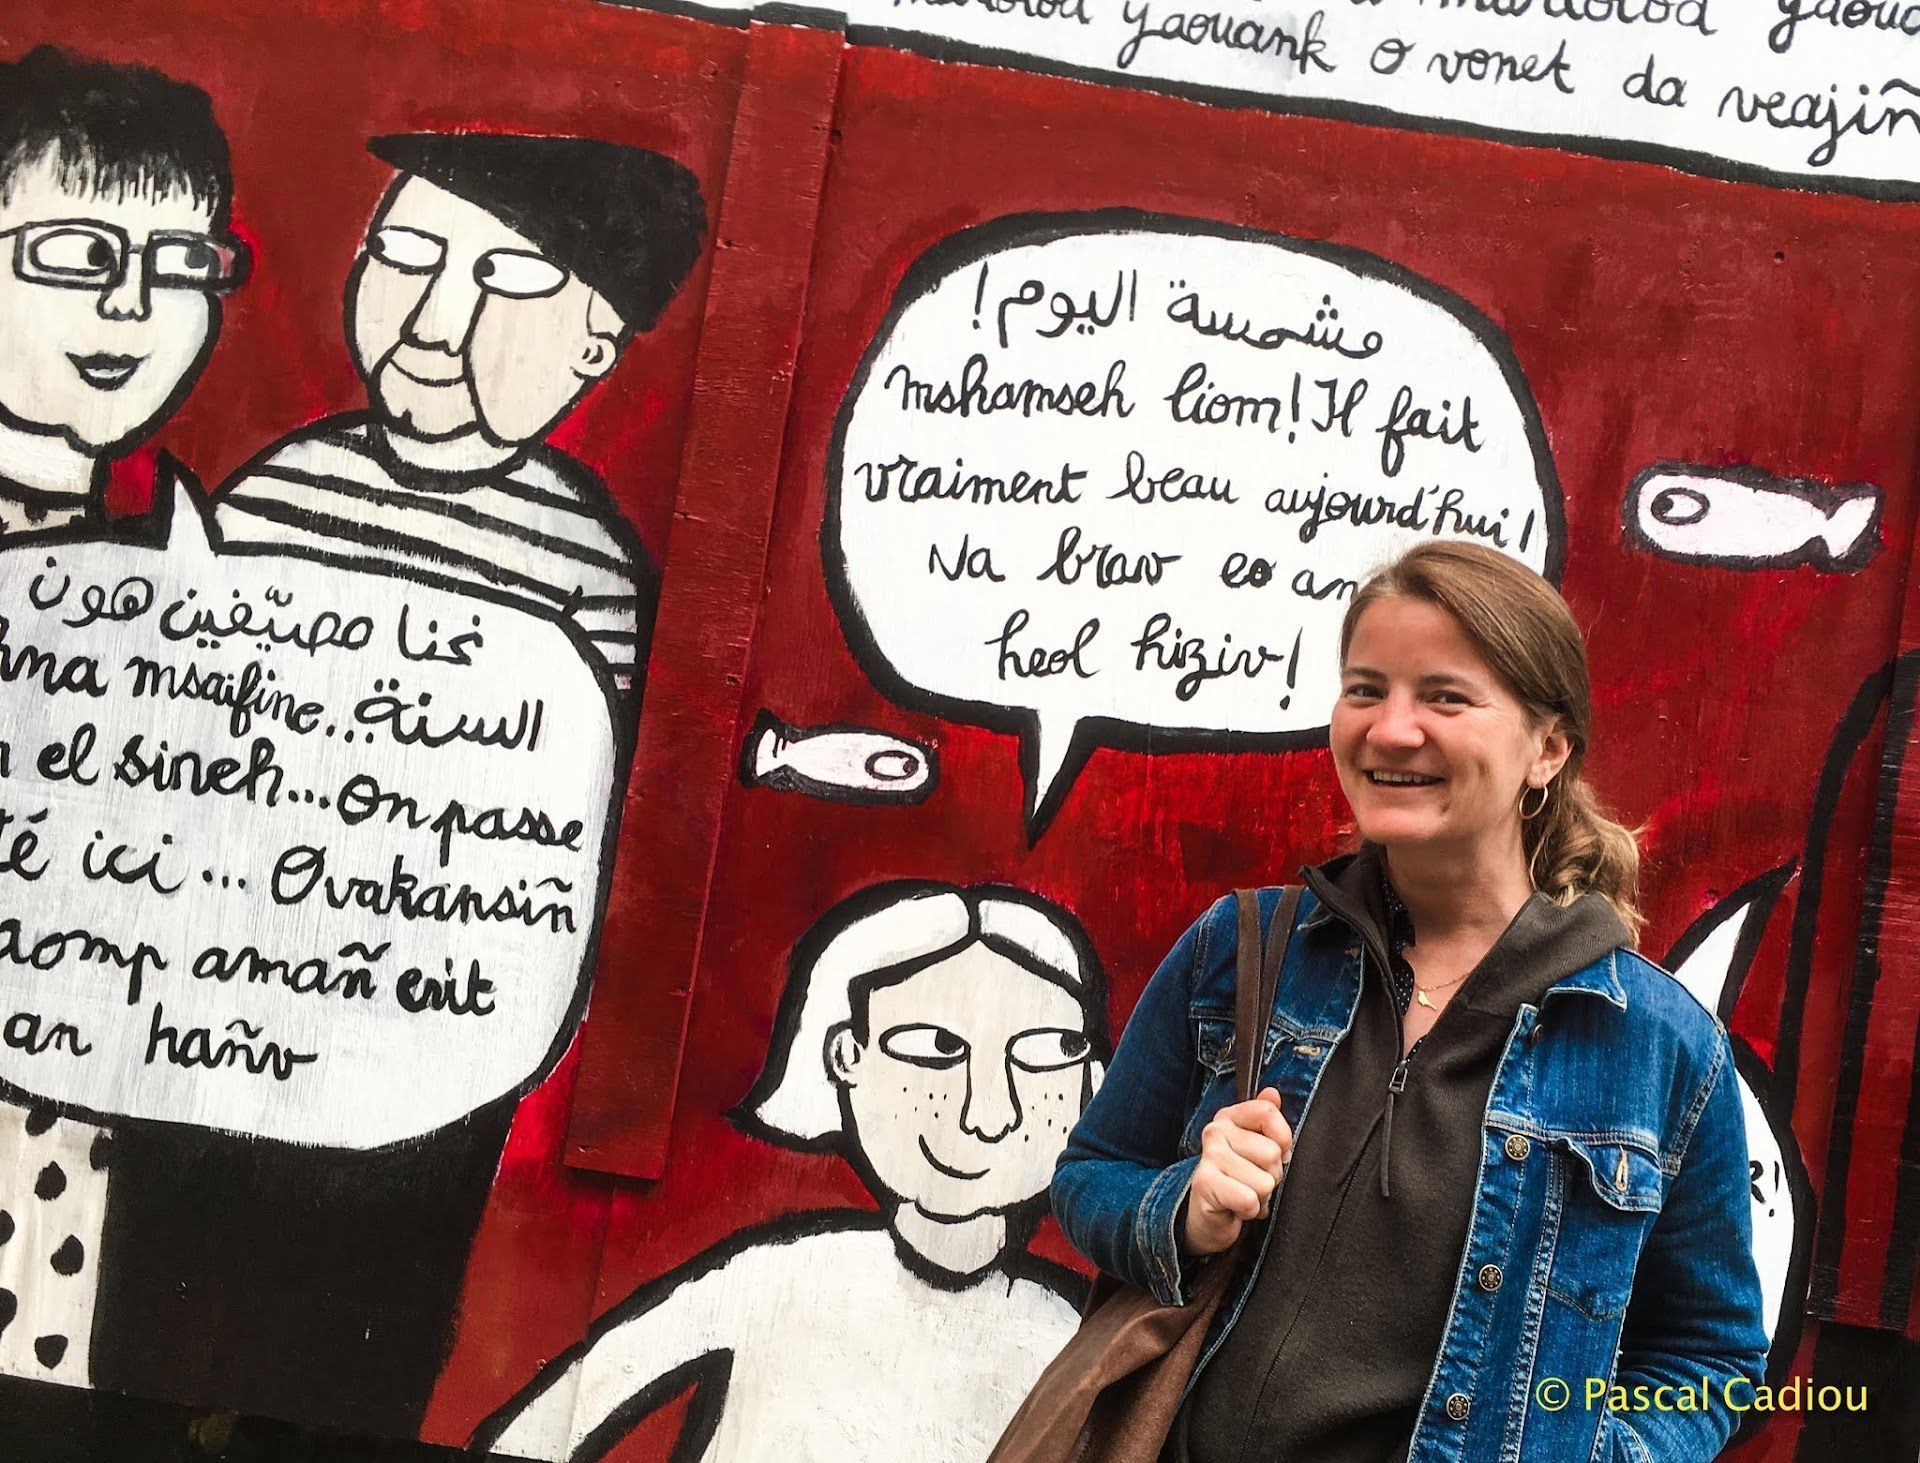 yaouank o vonet da veajiñ
مشمسة اليوم!
mshamseh liom! Il fait
vraiment beau aujourd'hui!
Na brav eo an
heol hiziv!
نحنا مصيّفين هون
hna msaifine.. السنة..
el sineh... on passe
té ici ... Ovakansiñ
aomp amañ evit
an hañv
R!
© Pascal Cadiou